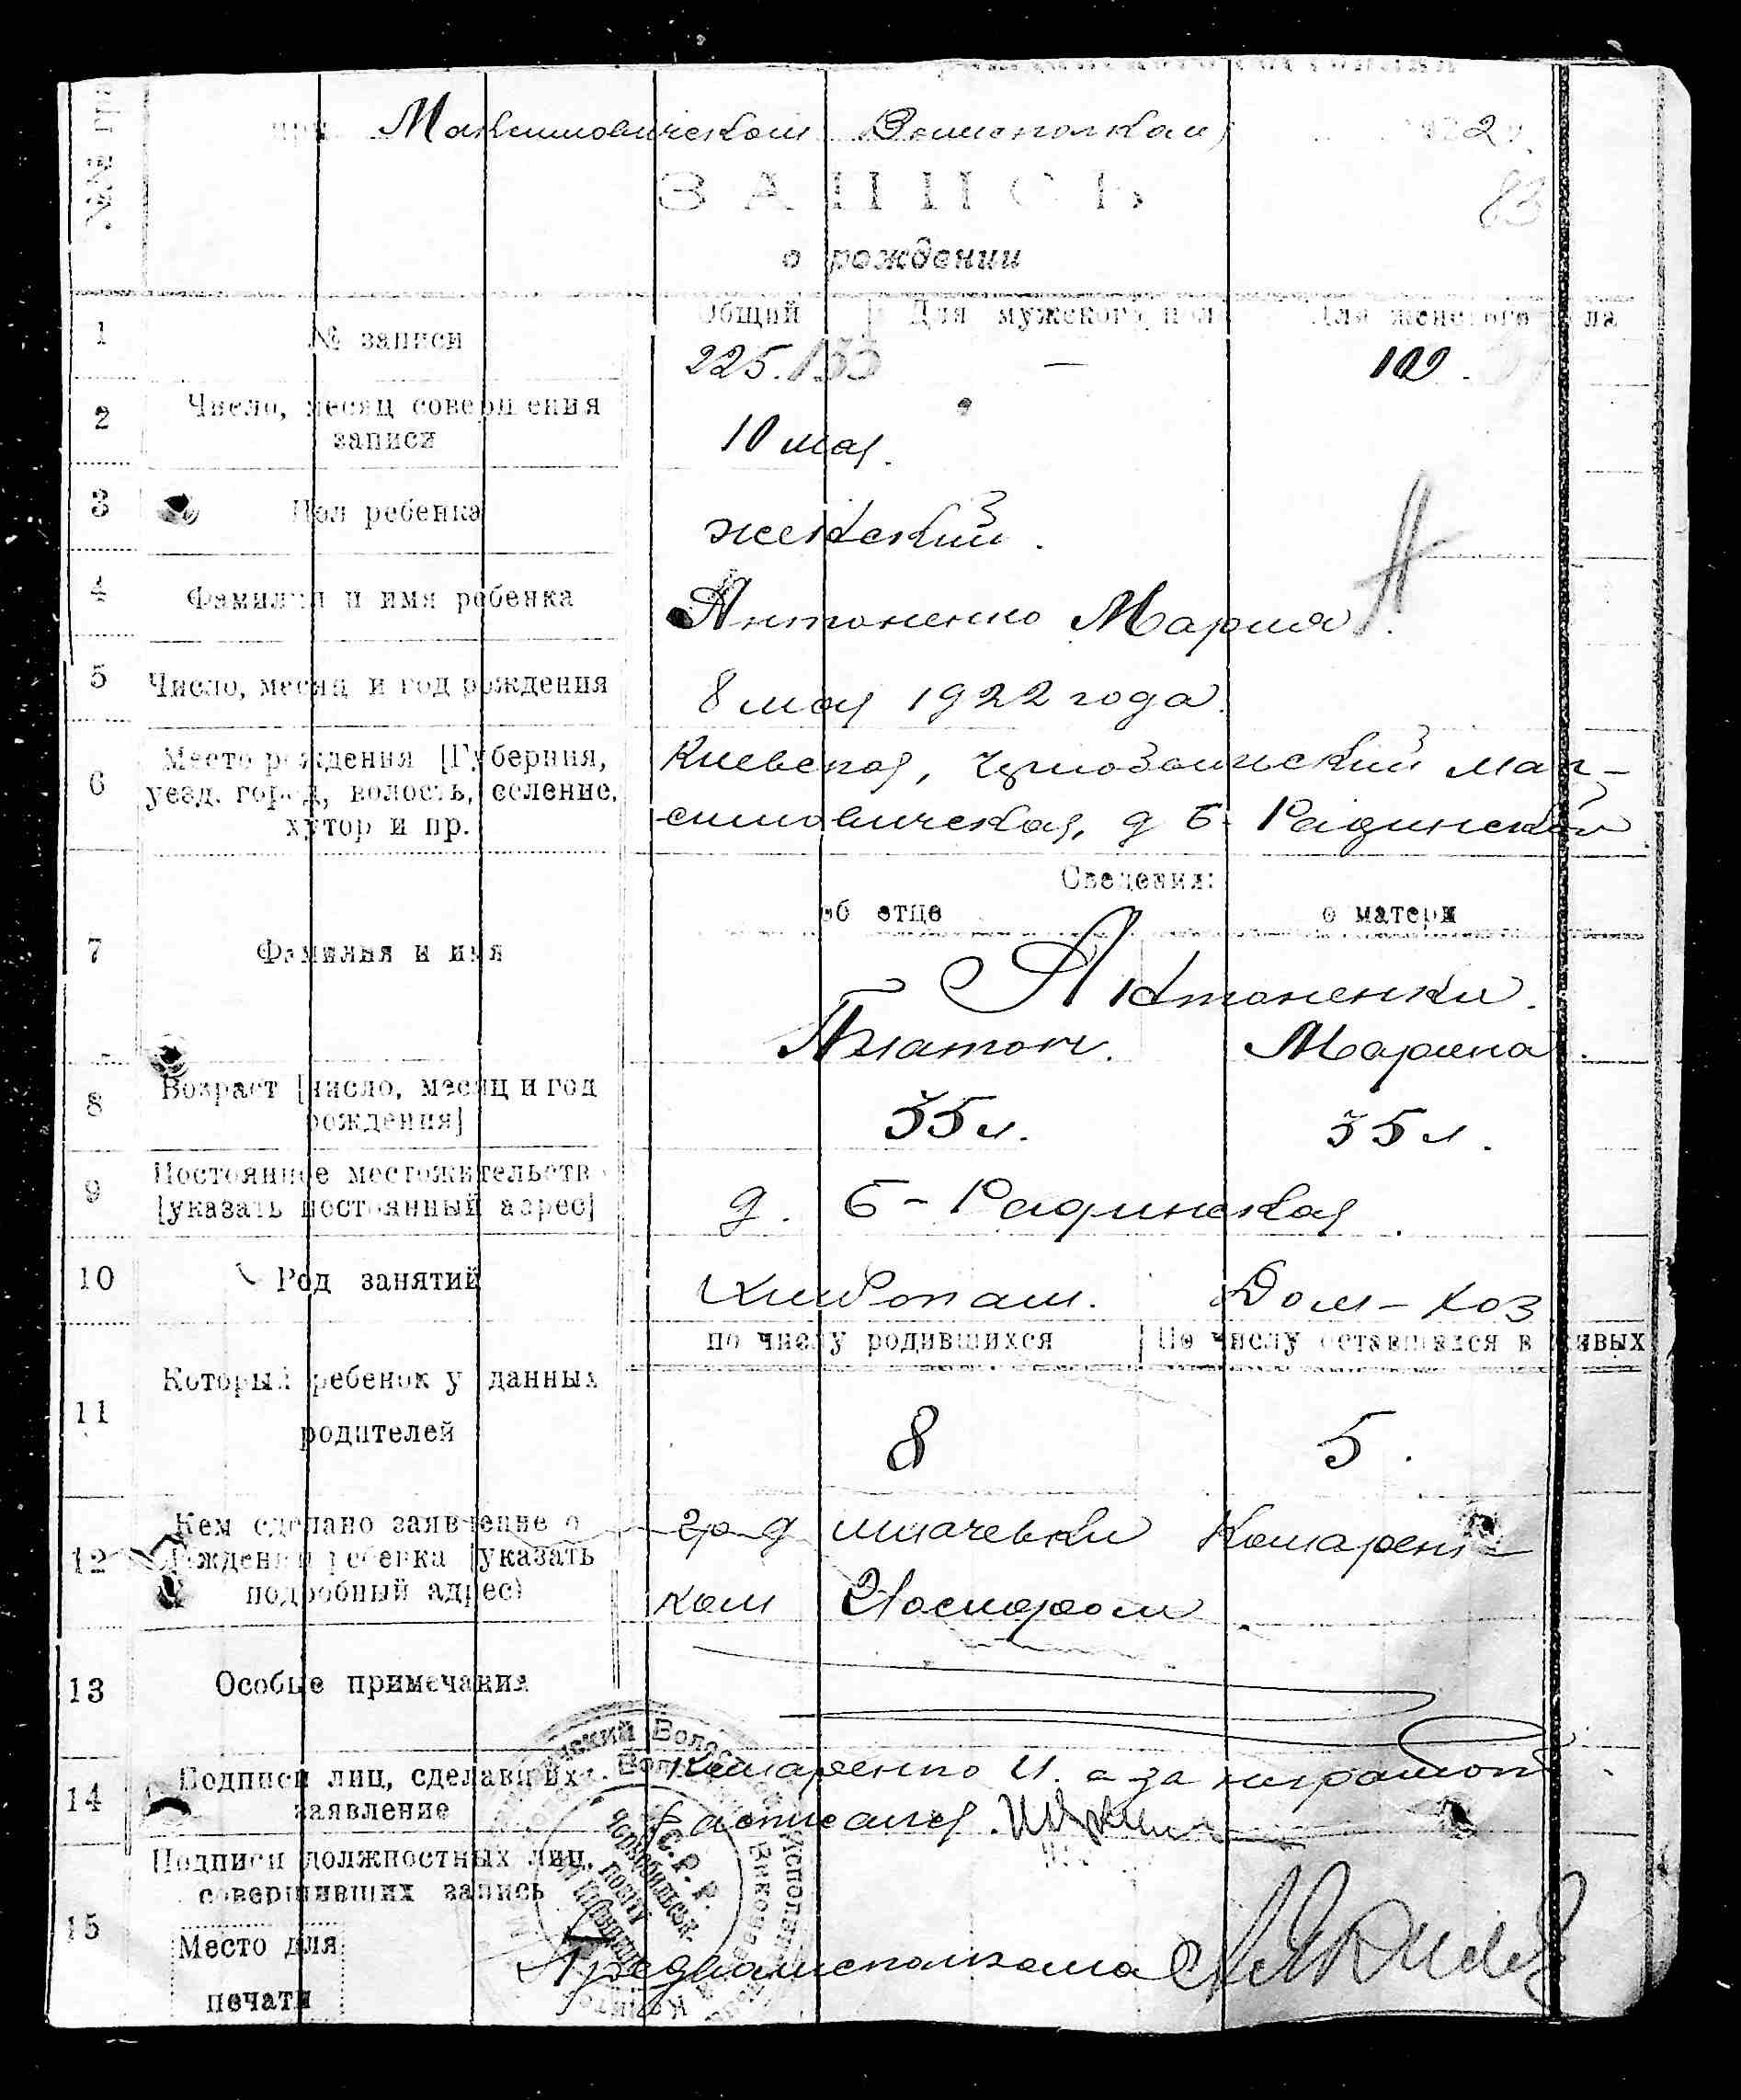 при Максимовическом Волисполкоме 1922 г.
ЗАПИСЬ
83
о рождении
№№ гра
Общий Для мужского пол Для женского пола
1 № записи 225. 133 — 102.
2 Число, месяц совершения
записи 10 мая.
3 Пол ребенка женский.
4 Фамилия и имя ребенка Антоненко Мария.
А
5 Число, месяц и год рождения 8 мая 1922 года.
6 Место рождения [Губерния,
уезд, город, волость, селение,
хутор и пр.
Киевская, Чернобыльский Мак-
симовическая, д Б-Радинской
Сведения:
об отце о матери
7 Фамилия и имя
Антоненки.
Платон. Марина.
8 Возраст [число, месяц и год
рождения]
35 л. 35 л.
9 Постоянное местожительств
[указать постоянный адрес]
д. Б-Радинская.
10 Род занятий Хлебопаш. Дом-хоз
по числу родившихся По числу оставшихся в живых
11 Который ребенок у данных
родителей
8 5.
12 Кем сделано заявление о
рождении ребенка [указать
подробный адрес)
гр д Комарен-
ком
13 Особые примечания
14 Подписи лиц, сделавших
заявление
Комаренко И. а за неграмот
расписался.
15 Подписи должностных лиц,
совершивших запись
Место для
печати
Предволисполкома